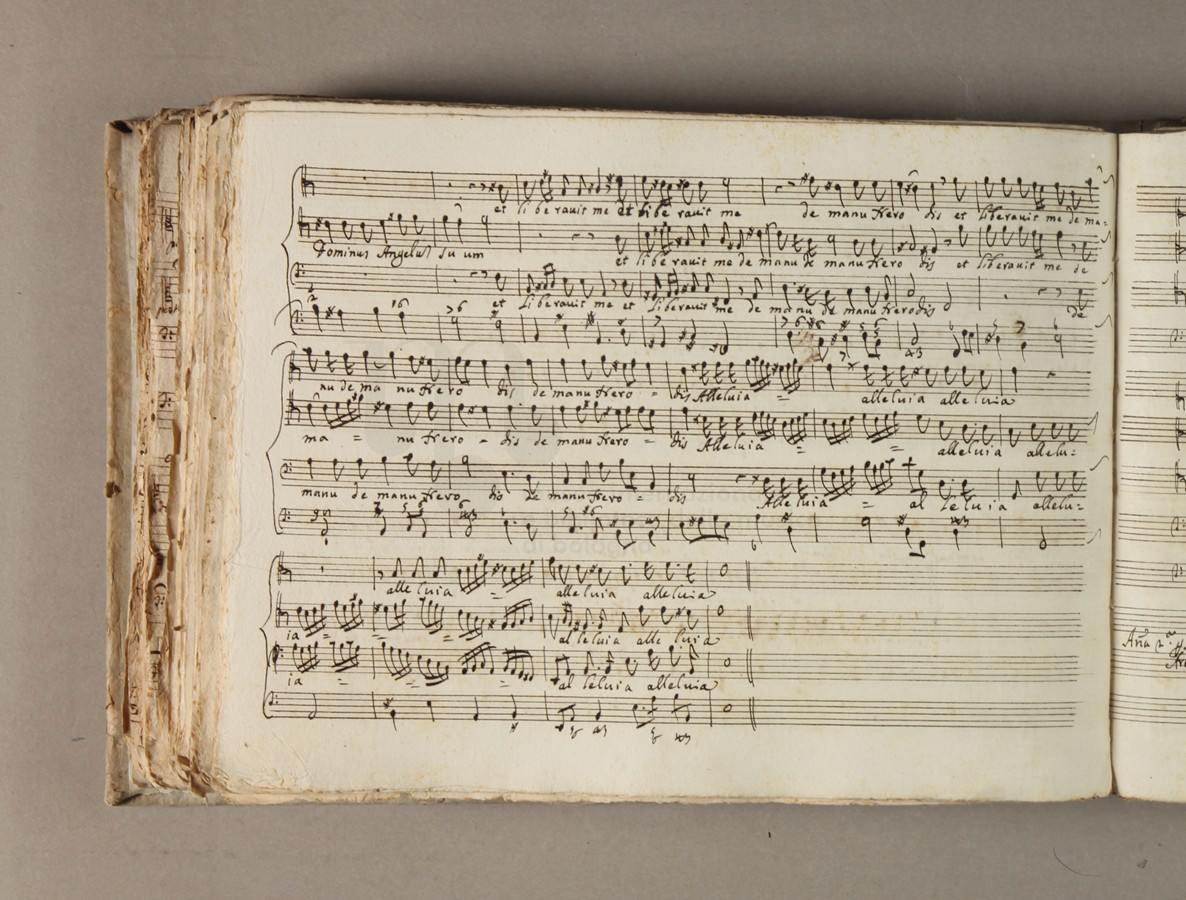 et liberavit me et libe ravit me de manu Hero dis et liberavit me de ma=
Dominus Angelum su um et liberavit me de manu de manu Hero dis et liberavit me de
et liberavit me et liberavit me de manu de manu Herodis de
nu de ma nu Hero dis de manu Hero = dis Alleluia = alleluia alleluia
ma = nu Hero - dis de manu Hero = dis Alleluia = alleluia allelu=
manu de manu Hero dis de manu Hero = dis Alleluia = al leluia allelu=
alleluia = alleluia alleluia
ia = = = al leluia alle luia
ia = = = al leluia alleluia